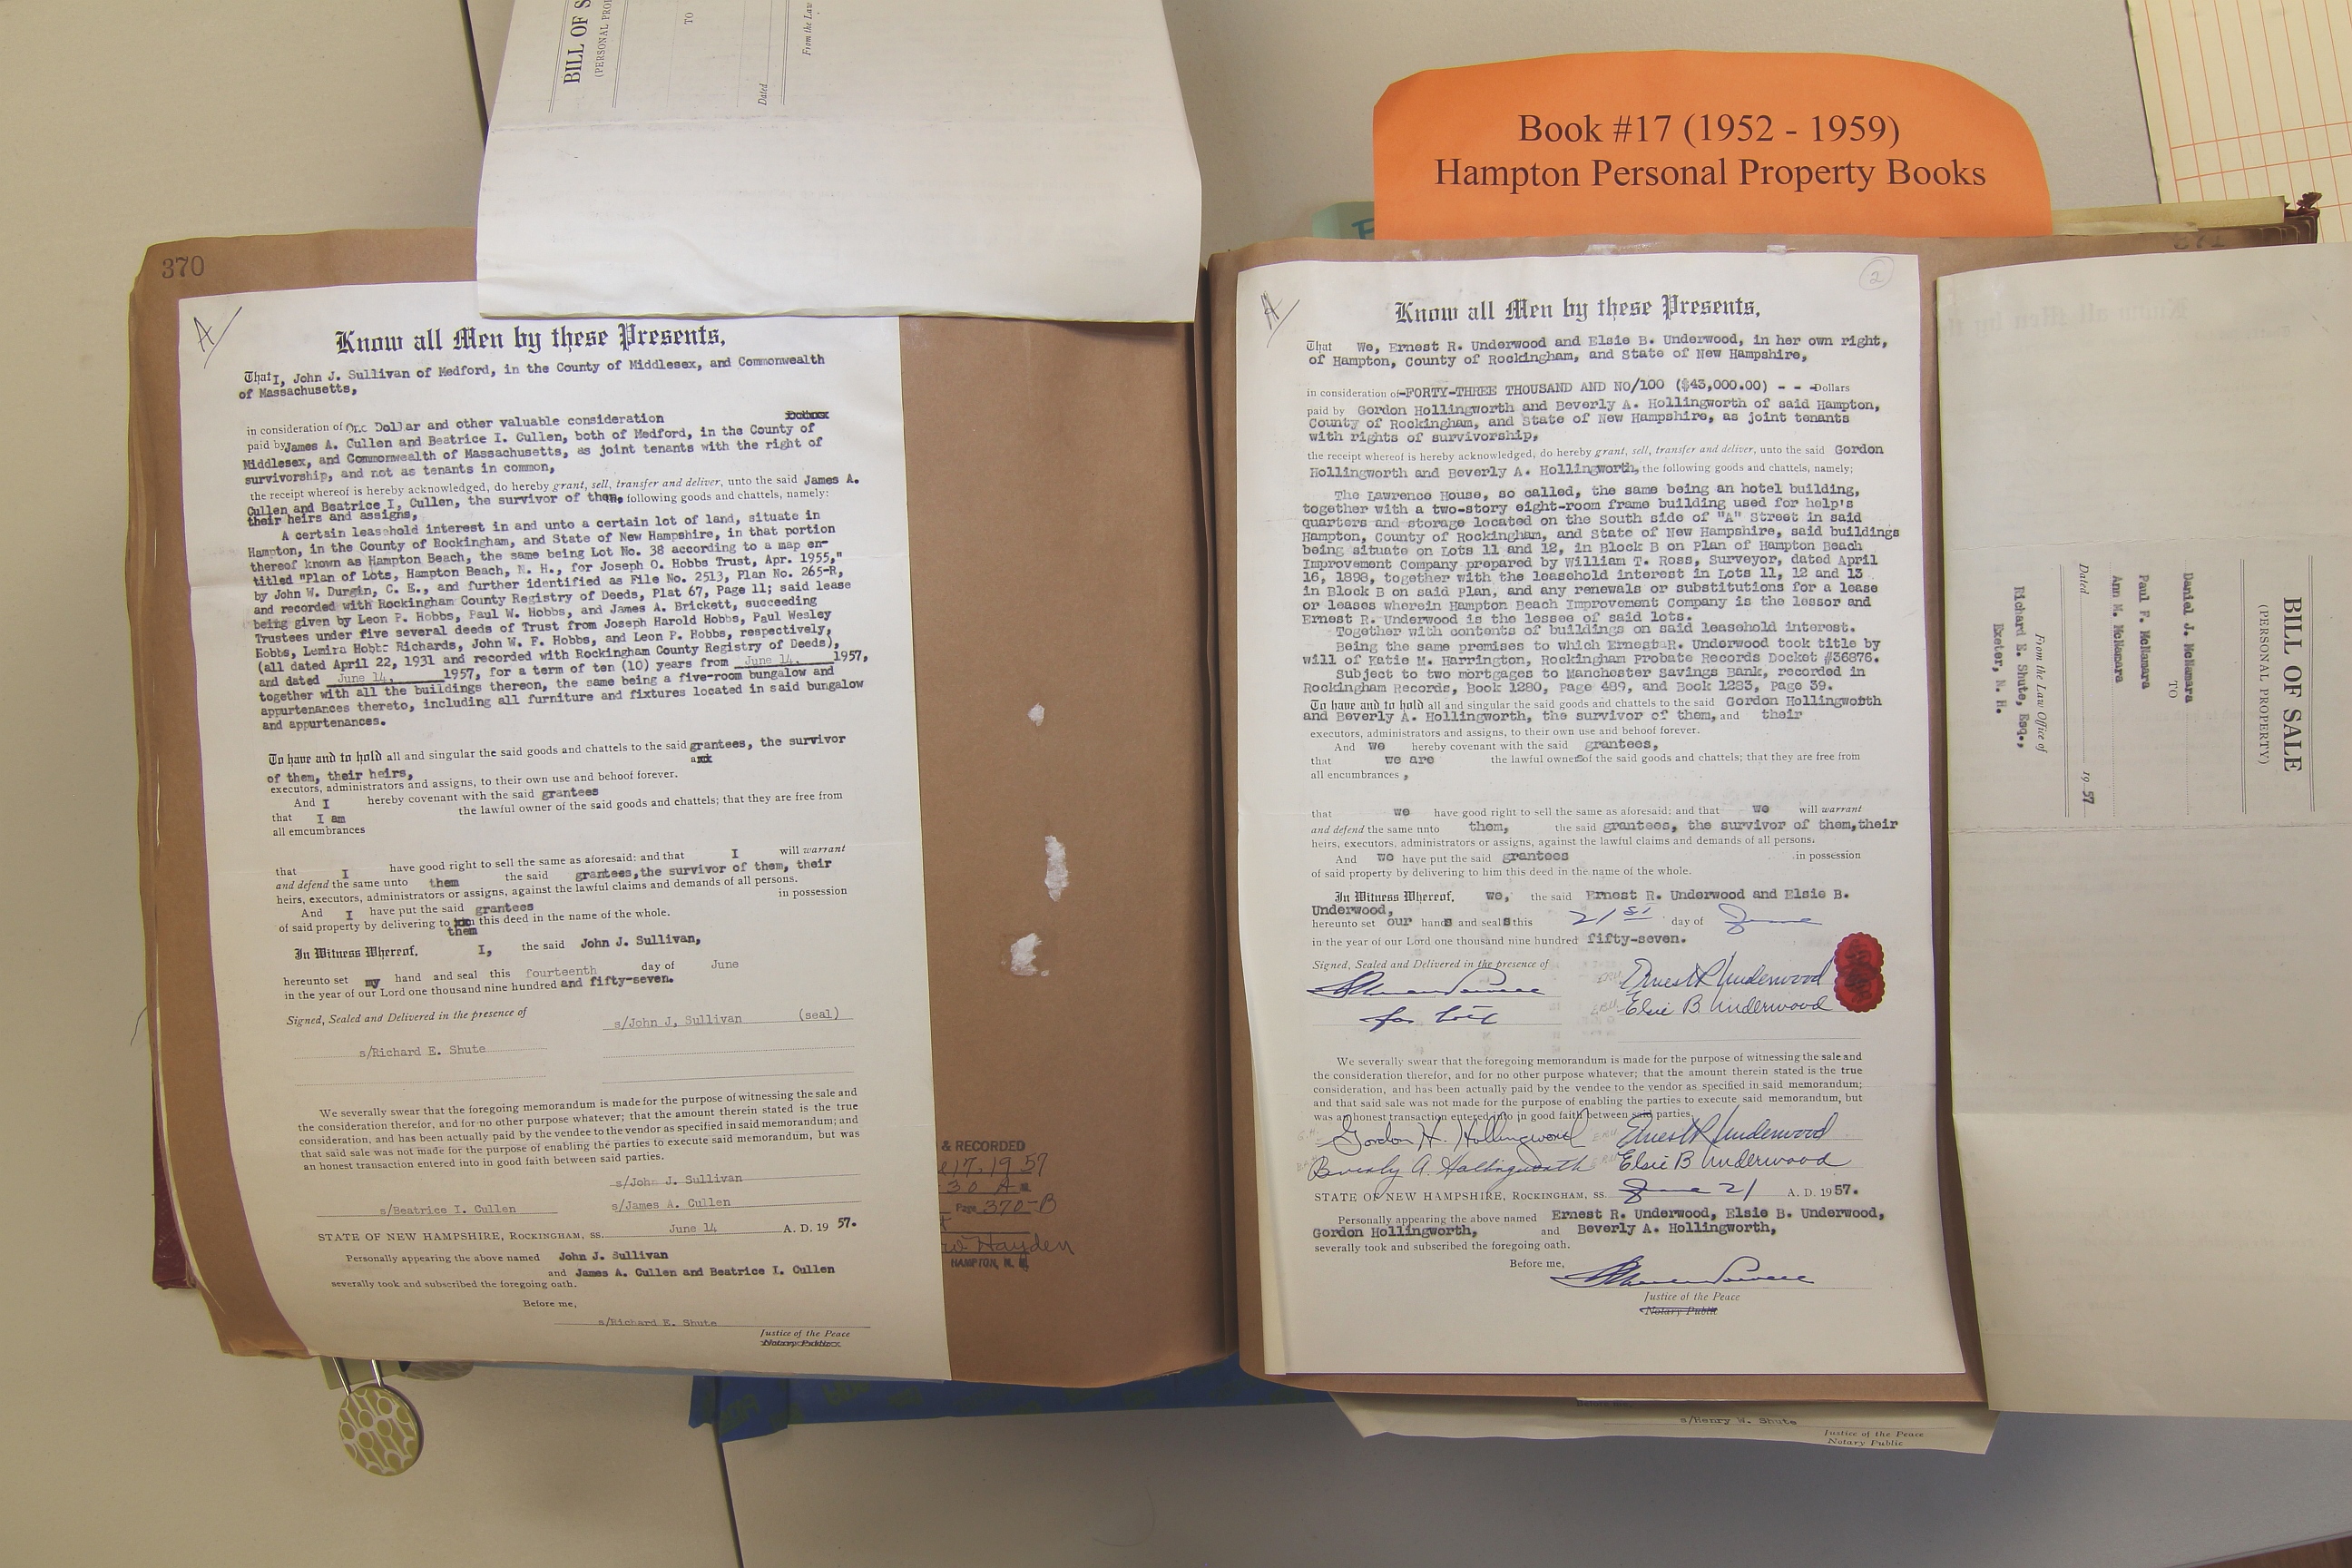 BILL OF S
(PERSONAL PROP
TO
Dated
From the Law
Book #17 (1952 - 1959)
Hampton Personal Property Books
370
A
Know all Men by these Presents,
That I, John J. Sullivan of Medford, in the County of Middlesex, and Commonwealth
of Massachusetts,
in consideration of One Dollar and other valuable consideration
paid by James A. Cullen and Beatrice I. Cullen, both of Medford, in the County of
Middlesex, and Commonwealth of Massachusetts, as joint tenants with the right of
survivorship, and not as tenants in common,
the receipt whereof is hereby acknowledged, do hereby grant, sell, transfer and deliver, unto the said James A.
Cullen and Beatrice I, Cullen, the survivor of them, following goods and chattels, namely:
their heirs and assigns,
A certain leasehold interest in and unto a certain lot of land, situate in
Hampton, in the County of Rockingham, and State of New Hampshire, in that portion
thereof known as Hampton Beach, the same being Lot No. 38 according to a map en-
titled "Plan of Lots, Hampton Beach, N. H., for Joseph O. Hobbs Trust, Apr. 1955,"
by John W. Durgin, C. E., and further identified as File No. 2513, Plan No. 265-R,
and recorded with Rockingham County Registry of Deeds, Plat 67, Page 11; said lease
being given by Leon P. Hobbs, Paul W. Hobbs, and James A. Brickett, succeeding
Trustees under five several deeds of Trust from Joseph Harold Hobbs, Paul Wesley
Hobbs, Lemira Hobbs Richards, John W. F. Hobbs, and Leon P. Hobbs, respectively,
(all dated April 22, 1931 and recorded with Rockingham County Registry of Deeds),
and dated June 14, 1957, for a term of ten (10) years from June 14, 1957,
together with all the buildings thereon, the same being a five-room bungalow and
appurtenances thereto, including all furniture and fixtures located in said bungalow
and appurtenances.
To have and to hold all and singular the said goods and chattels to the said grantees, the survivor
of them, their heirs,
executors, administrators and assigns, to their own use and behoof forever.
And I hereby covenant with the said grantees
that I am the lawful owner of the said goods and chattels; that they are free from
all emcumbrances
that I have good right to sell the same as aforesaid: and that I will warrant
and defend the same unto them the said grantees,the survivor of them, their
heirs, executors, administrators or assigns, against the lawful claims and demands of all persons.
And I have put the said grantees in possession
of said property by delivering to this deed in the name of the whole.
them
In Witness Whereof, I, the said John J. Sullivan,
hereunto set my hand and seal this fourteenth day of June
in the year of our Lord one thousand nine hundred and fifty-seven.
Signed, Sealed and Delivered in the presence of
s/John J, Sullivan (seal)
s/Richard E. Shute
We severally swear that the foregoing memorandum is made for the purpose of witnessing the sale and
the consideration therefor, and for no other purpose whatever; that the amount therein stated is the true
consideration, and has been actually paid by the vendee to the vendor as specified in said memorandum; and
that said sale was not made for the purpose of enabling the parties to execute said memorandum, but was
an honest transaction entered into in good faith between said parties.
s/John J. Sullivan
s/Beatrice I. Cullen s/James A. Cullen
STATE OF NEW HAMPSHIRE, ROCKINGHAM, ss. June 14 A. D. 19 57.
Personally appearing the above named John J. Sullivan
and James A. Cullen and Beatrice I. Cullen
severally took and subscribed the foregoing oath.
Before me,
s/Richard E. Shute
Justice of the Peace
Notary Public
& RECORDED
17, 1957
30 A M
Page 370-B
Hayden
HAMPTON, N. H.
371
A
2
Know all Men by these Presents,
That We, Ernest R. Underwood and Elsie B. Underwood, in her own right,
of Hampton, County of Rockingham, and State of New Hampshire,
in consideration of -FORTY-THREE THOUSAND AND NO/100 ($43,000.00) - - - Dollars
paid by Gordon Hollingworth and Beverly A. Hollingworth of said Hampton,
County of Rockingham, and State of New Hampshire, as joint tenants
with rights of survivorship,
the receipt whereof is hereby acknowledged, do hereby grant, sell, transfer and deliver, unto the said Gordon
Hollingworth and Beverly A. Hollingworth, the following goods and chattels, namely;
The Lawrence House, so called, the same being an hotel building,
together with a two-story eight-room frame building used for help's
quarters and storage located on the South side of "A" Street in said
Hampton, County of Rockingham, and State of New Hampshire, said buildings
being situate on Lots 11 and 12, in Block B on Plan of Hampton Beach
Improvement Company prepared by William T. Ross, Surveyor, dated April
16, 1898, together with the leasehold interest in Lots 11, 12 and 13
in Block B on said Plan, and any renewals or substitutions for a lease
or leases wherein Hampton Beach Improvement Company is the lessor and
Ernest R. Underwood is the lessee of said lots.
Together with contents of buildings on said leasehold interest.
Being the same premises to which Ernest R. Underwood took title by
will of Katie M. Harrington, Rockingham Probate Records Docket #36876.
Subject to two mortgages to Manchester Savings Bank, recorded in
Rockingham Records, Book 1280, Page 489, and Book 1283, Page 39.
To have and to hold all and singular the said goods and chattels to the said Gordon Hollingwotth
and Beverly A. Hollingworth, the survivor of them, and their
executors, administrators and assigns, to their own use and behoof forever.
And we hereby covenant with the said grantees,
that we are the lawful owners of the said goods and chattels; that they are free from
all encumbrances,
that we have good right to sell the same as aforesaid: and that we will warrant
and defend the same unto them, the said grantees, the survivor of them,their
heirs, executors, administrators or assigns, against the lawful claims and demands of all persons.
And we have put the said grantees in possession
of said property by delivering to him this deed in the name of the whole.
In Witness Whereof, we, the said Ernest R. Underwood and Elsie B.
Underwood,
hereunto set our hands and seals this 21st day of June
in the year of our Lord one thousand nine hundred fifty-seven.
Signed, Sealed and Delivered in the presence of
Ernest R Underwood
Elsie B Underwood
We severally swear that the foregoing memorandum is made for the purpose of witnessing the sale and
the consideration therefor, and for no other purpose whatever; that the amount therein stated is the true
consideration, and has been actually paid by the vendee to the vendor as specified in said memorandum;
and that said sale was not made for the purpose of enabling the parties to execute said memorandum, but
was an honest transaction entered into in good faith between said parties.
Gordon H. Hollingworth Ernest R Underwood
Beverly A. Hollingworth Elsie B Underwood
STATE OF NEW HAMPSHIRE, ROCKINGHAM, ss. June 21 A. D. 1957.
Personally appearing the above named Ernest R. Underwood, Elsie B. Underwood,
Gordon Hollingworth, and Beverly A. Hollingworth,
severally took and subscribed the foregoing oath.
Before me,
Justice of the Peace
Notary Public
s/Henry W. Shute
Justice of the Peace
Notary Public
BILL OF SALE
(PERSONAL PROPERTY)
Daniel J. McNamara
TO
Paul F. McNamara
Ann M. McNamara
Dated 19 57
From the Law Office of
Richard E. Shute, Esq.,
Exeter, N. H.